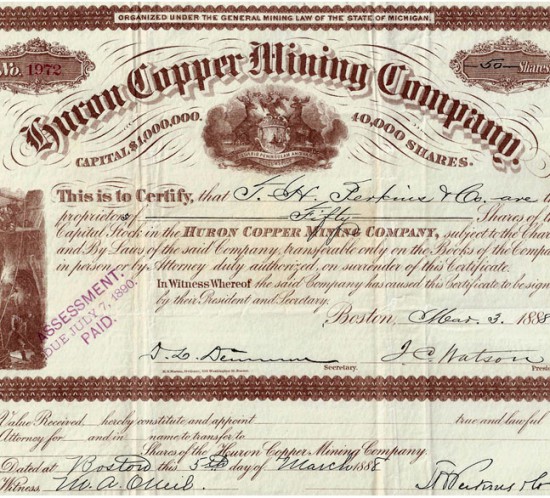 ORGANIZED UNDER THE GENERAL MINING LAW OF THE STATE OF MICHIGAN.
No. 1972
50 Shares
Huron Copper Mining Company.
CAPITAL $1,000,000. 40,000 SHARES.
This is to Certify, that T. H. Perkins & Co. are the
proprietors Fifty Shares of the
Capital Stock in the HURON COPPER MINING COMPANY, subject to the
and By Laws of the said Company, transferable only on the Books of the
in person or by Attorney duly authorized, on surrender of this Certificate.
In Witness Whereof the said Company has caused this Certificate to be
by their President and Secretary.
ASSESSMENT
DUE JULY 7, 1890.
PAID.
Boston, Mar 3, 1888
D. L. J. C. Watson
Secretary.
Value Received hereby constitute and appoint true and lawful
Attorney for and in name to transfer to
Shares of the Huron Copper Mining Company.
Dated at Boston this 5th day of March 1888
Witness